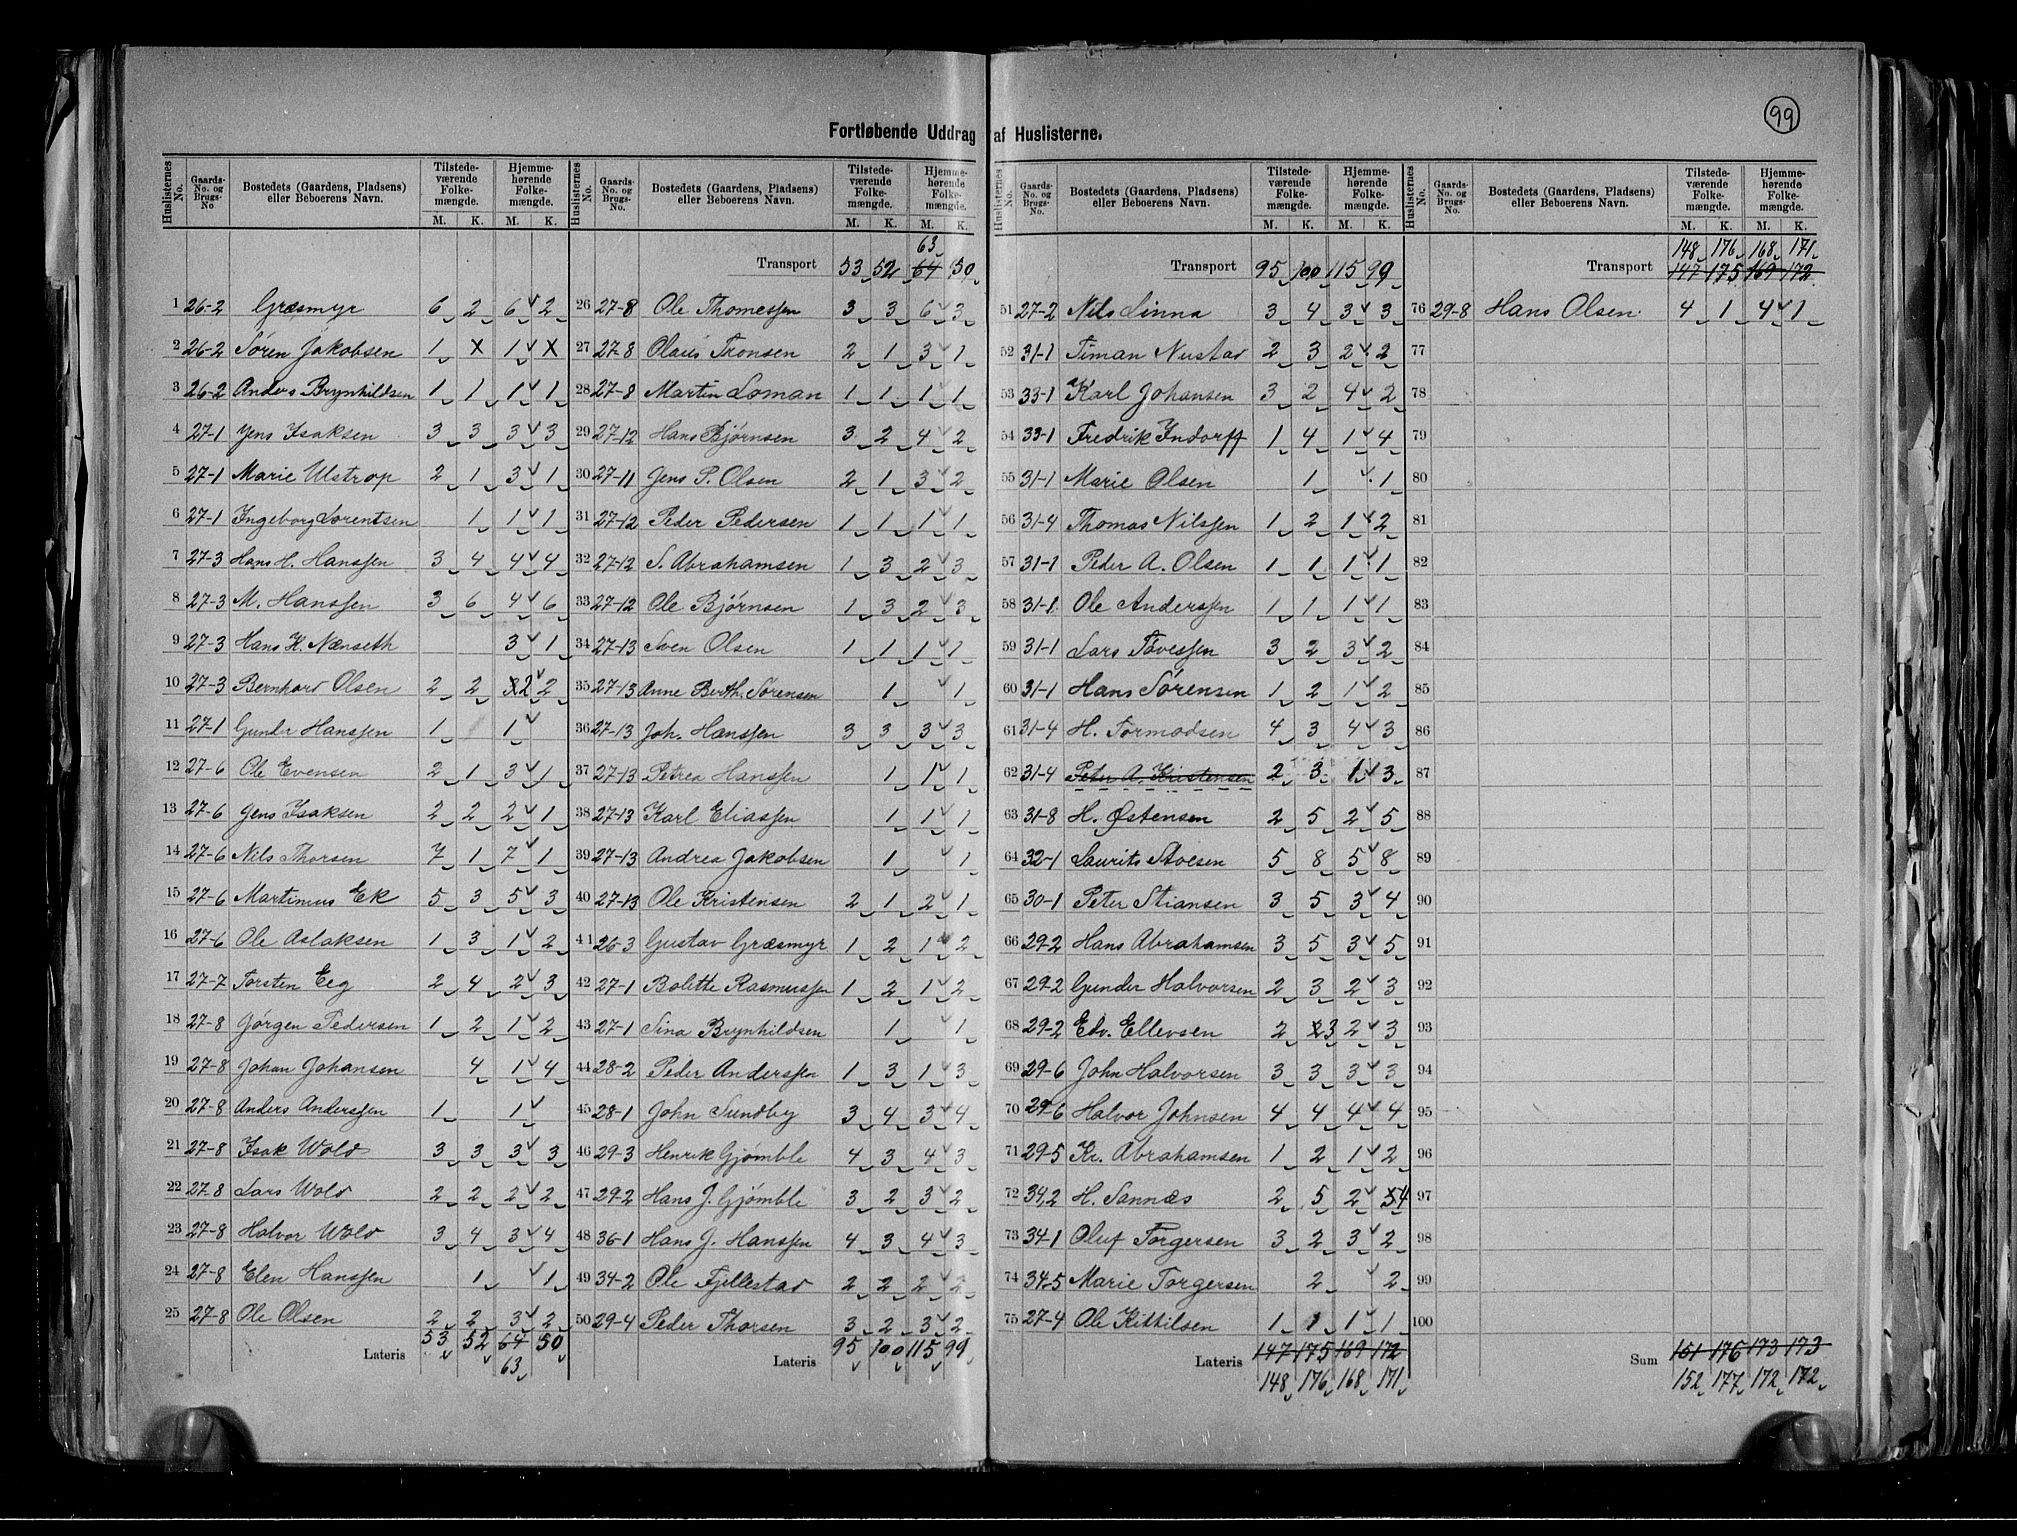 99
Fortløbende Uddrag af Huslisterne.
Huslisternes No. | Gaards-No. og Brugs-No | Bostedets (Gaardens, Pladsens) eller Beboerens Navn. | Tilstedeværende Folkemængde. M. K. | Hjemmehørende Folkemængde. M. K.
1 26-2 Græsmyr 6 2 6 2
2 26-2 Søren Jakobsen 1 X 1 X
3 26-2 Anders Brynhildsen 1 1 1 1
4 27-1 Jens Isaksen 3 3 3 3
5 27-1 Marie Ulstrop 2 1 3 1
6 27-1 Ingeborg Lorentsen 1 1 1
7 27-3 Hans H. Hanssen 3 4 4 4
8 27-3 M. Hanssen 3 6 4 6
9 27-3 Hans K. Nænseth 3 1
10 27-3 Bernhard Olsen 2 2 2 2
11 27-1 Gunder Hanssen 1 1
12 27-6 Ole Evensen 2 1 3 1
13 27-6 Jens Isaksen 2 2 2 1
14 27-6 Nils Thorsen 7 1 7 1
15 27-6 Martinus Ek 5 3 5 3
16 27-6 Ole Aslaksen 1 3 1 2
17 27-7 Torsten Eeg 2 4 2 3
18 27-8 Jørgen Pedersen 1 2 1 2
19 27-8 Johan Johansen 4 1 4
20 27-8 Anders Anderssen 1 1
21 27-8 Isak Wold 3 3 3 3
22 27-8 Lars Wold 2 2 2 2
23 27-8 Halvor Wold 3 4 3 4
24 27-8 Elen Hanssen 1 1
25 27-8 Ole Olsen 2 2 3 2
Lateris 53 52 64 50
63
Huslisternes No. | Gaards-No. og Brugs-No. | Bostedets (Gaardens, Pladsens) eller Beboerens Navn. | Tilstedeværende Folkemængde. M. K. | Hjemmehørende Folkemængde. M. K.
63
Transport 53 52 64 50
26 27-8 Ole Thomessen 3 3 6 3
27 27-8 Olaus Tronsen 2 1 3 1
28 27-8 Martin Loman 1 1 1 1
29 27-12 Hans Bjørnsen 3 2 4 2
30 27-11 Jens P. Olsen 2 1 3 2
31 27-12 Peder Pedersen 1 1 1 1
32 27-12 S. Abrahamsen 1 3 2 3
33 27-12 Ole Bjørnsen 1 3 2 3
34 27-13 Sven Olsen 1 1 1 1
35 27-13 Anne Berth. Sørensen 1 1
36 27-13 Joh. Hanssen 3 3 3 3
37 27-13 Petrea Hanssen 1 1 1
38 27-13 Karl Eliassen 1 1 1
39 27-13 Andrea Jakobsen 1 1
40 27-13 Ole Kristensen 2 1 2 1
41 26-3 Gustav Græsmyr 1 2 1 2
42 27-1 Bolette Rasmussen 1 2 1 2
43 27-1 Sina Brynhildsen 1 1
44 28-2 Peder Anderssen 1 3 1 3
45 28-1 John Sundby 3 4 3 4
46 29-3 Henrik Gjømble 4 3 4 3
47 29-2 Hans J. Gjømble 3 2 3 2
48 36-1 Hans J. Hanssen 4 3 4 3
49 34-2 Ole Fjellestad 2 2 2 2
50 29-4 Peder Thorsen 3 2 3 2
Lateris 95 100 115 99
Huslisternes No. | Gaards-No. og Brugs-No. | Bostedets (Gaardens, Pladsens) eller Beboerens Navn. | Tilstedeværende Folkemængde. M. K. | Hjemmehørende Folkemængde. M. K.
Transport 95 100 115 99
51 27-2 Nils Linna 3 4 3 3
52 31-1 Timan Nustad 2 3 2 2
53 33-1 Karl Johansen 3 2 4 2
54 33-1 Fredrik Indorff 1 4 1 4
55 31-1 Marie Olsen 1 1
56 31-4 Thomas Nilssen 1 2 1 2
57 31-1 Peder A. Olsen 1 1 1 1
58 31-1 Ole Anderssen 1 1 1 1
59 31-1 Lars Tovessen 3 2 3 2
60 31-1 Hans Sørensen 1 2 1 2
61 31-4 H. Tormodsen 4 3 4 3
62 31-4 Peter A. Kristensen 2 3 1 3
63 31-8 H. Østensen 2 5 2 5
64 32-1 Laurits Stoesen 5 8 5 8
65 30-1 Peter Stiansen 3 5 3 4
66 29-2 Hans Abrahamsen 3 5 3 5
67 29-2 Gunder Halvorsen 2 3 2 3
68 29-2 Edv. Ellevsen 2 3 2 3
69 29-6 John Halvorsen 3 3 3 3
70 29-6 Halvor Johnsen 4 4 4 4
71 29-5 Kr. Abrahamsen 1 2 1 2
72 34,2 H. Sannæs 2 5 2 4
73 34-1 Oluf Torgersen 3 2 3 2
74 34-5 Marie Torgersen 2 2
75 27-4 Ole Kittilsen 1 1 1 1
Lateris 147 175 169 172
148 176 168 171
Huslisternes No. | Gaards-No. og Brugs-No. | Bostedets (Gaardens, Pladsens) eller Beboerens Navn. | Tilstedeværende Folkemængde. M. K. | Hjemmehørende Folkemængde. M. K.
148 176 168 171
Transport 147 175 169 172
76 29-8 Hans Olsen 4 1 4 1
77
78
79
80
81
82
83
84
85
86
87
88
89
90
91
92
93
94
95
96
97
98
99
100
Sum 151 176 173 173
152 177 172 172